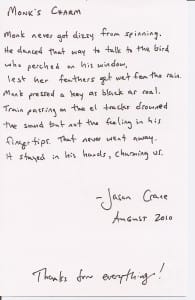 MONK'S CHARM
Monk never got dizzy from spinning.
He danced that way to talk to the bird
who perched on his window,
lest her feathers get wet from the rain.
Monk pressed a key as black as coal.
Train passing on the el tracks drowned
the sound but not the feeling in his
fingertips. That never went away.
It stayed in his hands, charming us.
-Jason Crane
AUGUST 2010
Thanks for everything!